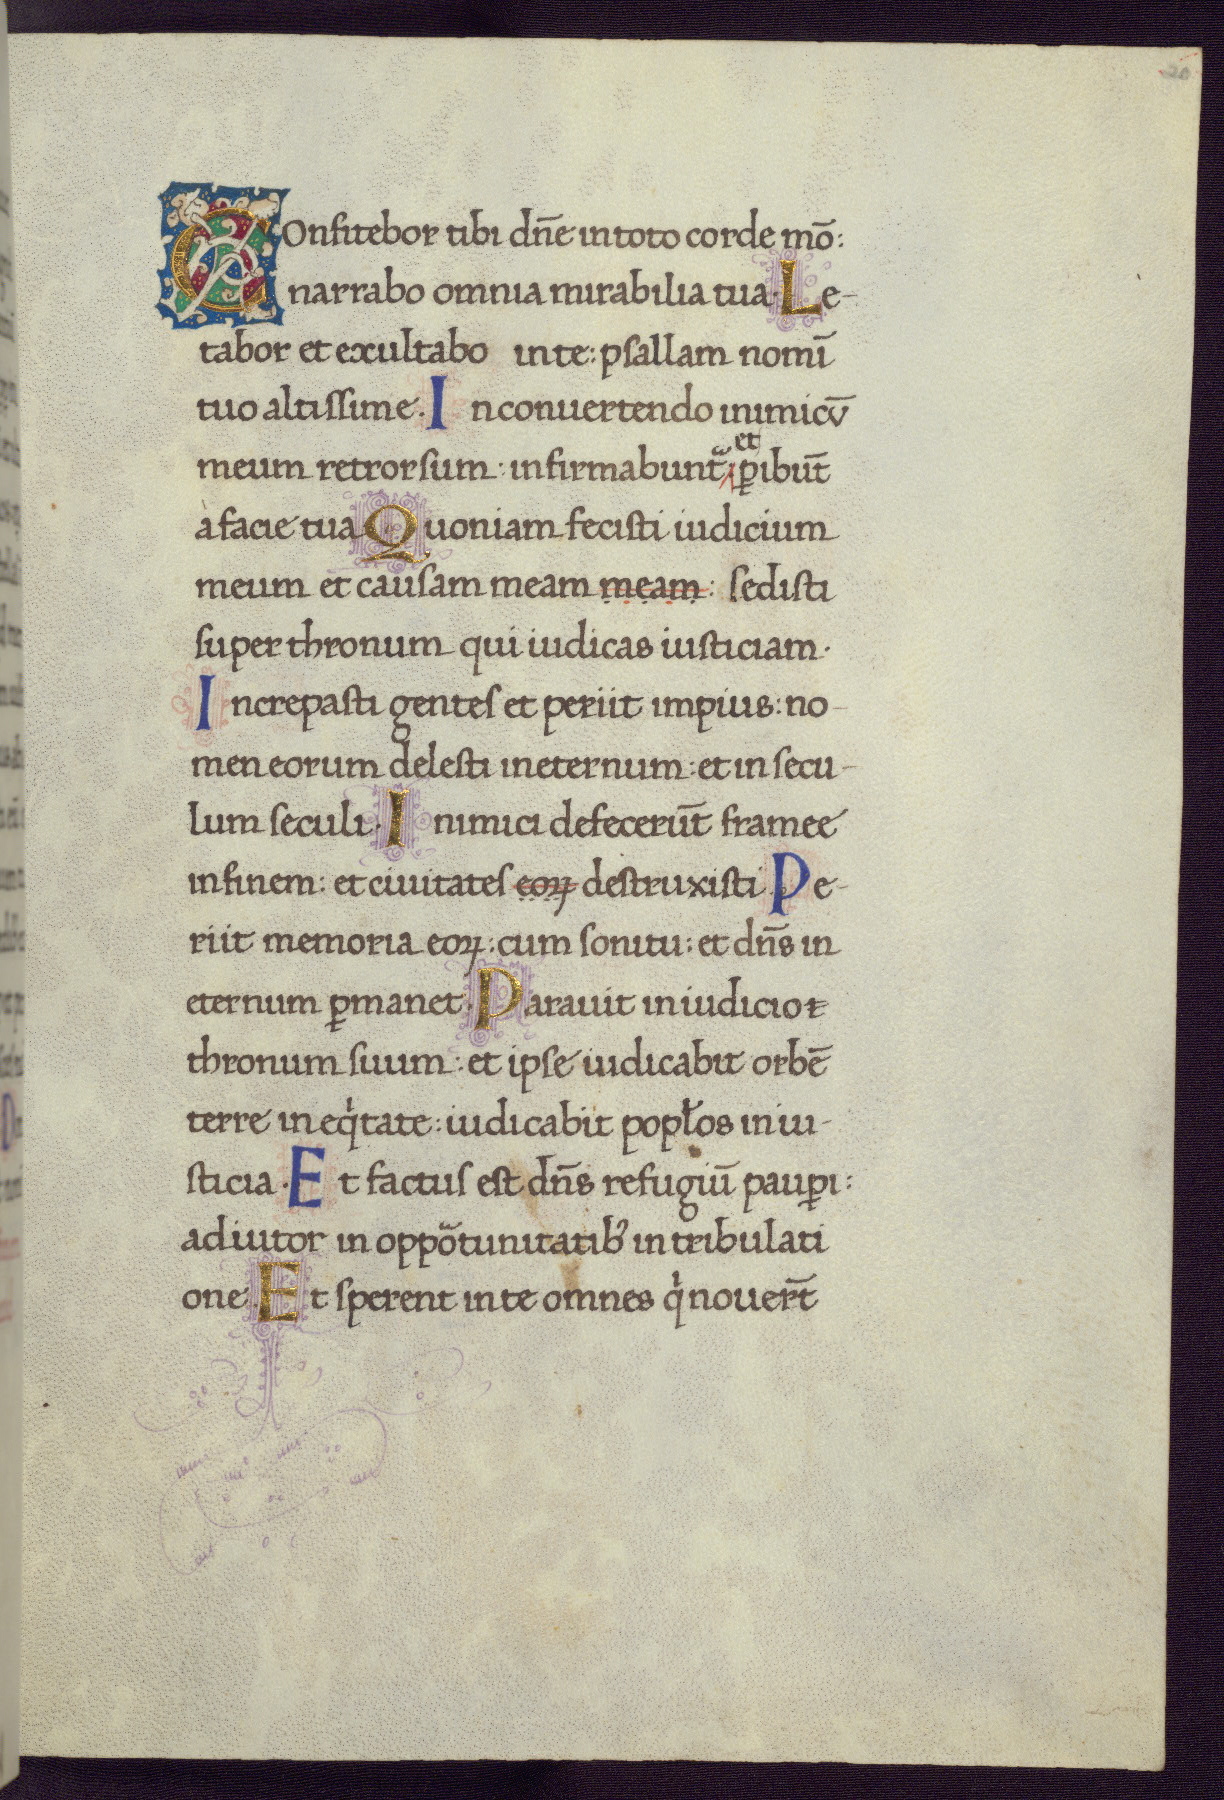 COnfitebor tibi dn̄e in toto corde mō:
narrabo omnia mirabilia tua. Le-
tabor et exultabo in te: psallam nomī
tuo altissime. In conuertendo inimicū
meum retrorsum: infirmabunt᷑ et ꝑibūt
a facie tua Quoniam fecisti iudicium
meum et causam meam meam: sedisti
super thronum qui iudicas iusticiam.
Increpasti gentes et periit impius: no-
men eorum delesti in eternum: et in secu-
lum seculi. Inimici defecerūt framee
in finem: et ciuitates eoꝝ destruxisti. Pe-
riit memoria eoꝝ: cum sonitu: et dn̄s in
eternum ꝑmanet. Parauit in iudicio t
thronum suum: et ipse iudicabit orbē
terre in eqͥtate: iudicabit popl̓os in iu-
sticia. Et factus est dn̄s refugiū pauꝑi:
adiutor in oppoᷓtunitatib' in tribulati
one. Et sperent in te omnes qͥ nouer̄t